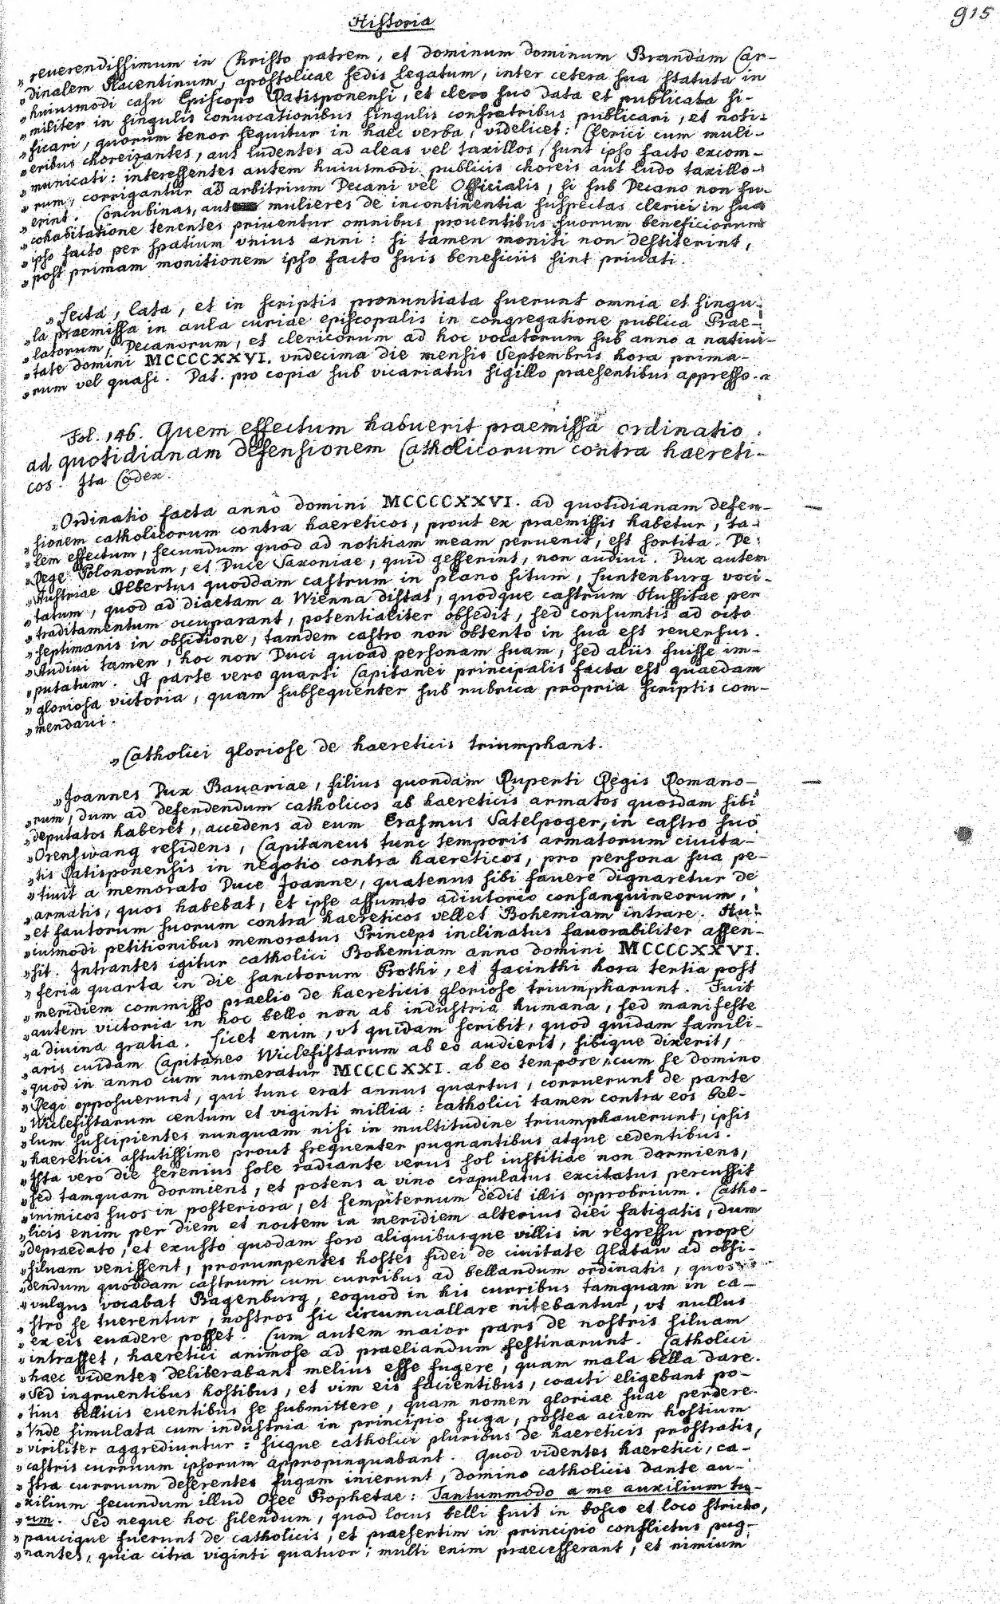 Historia
915
„reuerendissimum in Christo patrem, et dominum dominum Brandam Car-
„dinalem Placentinum, apostolicae sedis legatum, inter cetera sua statuta in
„huiusmodi casu Episcopo Ratisponensi, et clero suo data et publicata si-
„militer in singulis conuocationibus singulis confratribus publicari, et noti-
„ficari, quorum tenor sequitur in haec verba, videlicet: Clerici cum muli-
„eribus choreizantes, aut ludentes ad aleas vel taxillos, sunt ipso facto excom-
„municati: interessentes autem huiusmodi publicis choreis aut ludo taxillo-
„rum, corrigantur ad arbitrium Decani vel Officialis, si sub Decano non fu-
„erint. Concubinas, aut mulieres de incontinentia suspectas clerici in sua
„cohabitatione tenentes priuentur omnibus prouentibus suorum beneficiorum
„ipso facto per spatium vnius anni: si tamen moniti non destiterint,
„post primam monitionem ipso facto suis beneficiis sint priuati.
„Lecta, lata, et in scriptis pronuntiata fuerunt omnia et singu-
„la praemissa in aula curiae episcopalis in congregatione publica Prae-
„latorum, Decanorum, et clericorum ad hoc vocatorum sub anno a natiui-
„tate domini MCCCCXXVI. vndecima die mensis Septembris hora prima-
„rum vel quasi. Dat. pro copia sub vicariatus sigillo praesentibus appresso.
Fol. 146. Quem effectum habuerit praemissa ordinatio
ad quotidianam defensionem Catholicorum contra haereti-
cos. Ita Codex.
„Ordinatio facta anno domini MCCCCXXVI. ad quotidianam defen-
„sionem catholicorum contra haereticos, prout ex praemissis habetur, ta-
„lem effectum, secundum quod ad notitiam meam peruenit, est sortita. De
„Rege Polonorum, et Duce Saxoniae, quid gesserint, non audiui. Dux autem
„Austriae Albertus quoddam castrum in plano situm, Luntenburg voci-
„tatum, quod ad diaetam a Wienna distat, quodque castrum Hussitae per
„traditamentum occuparant, potentialiter obsedit, sed consumtis ad octo
„septimanis in obsidione, tamdem castro non obtento in sua est reuersus.
„Audiui tamen, hoc non Duci quoad personam suam, sed aliis fuisse im-
„putatum. A parte vero quarti Capitanei principalis facta est quaedam
„gloriosa victoria, quam subsequenter sub rubrica propria scriptis com-
„mendaui.
„Catholici gloriose de haereticis triumphant.
„Joannes Dux Bauariae, filius quondam Ruperti Regis Romano-
„rum, dum ad defendendum catholicos ab haereticis armatos quosdam sibi
„deputatos haberet, accedens ad eum Erasmus Satelpoger, in castro suo
„Orenswang residens, Capitaneus tunc temporis armatorum ciuita-
„tis Ratisponensis in negotio contra haereticos, pro persona sua pe-
„tiuit a memorato Duce Joanne, quatenus sibi fauere dignaretur de
„armatis, quos habebat, et ipse assumto adiutorio consanguineorum,
„et fautorum suorum contra haereticos vellet Bohemiam intrare. Hu-
„iusmodi petitionibus memoratus Princeps inclinatus fauorabiliter assen-
„sit. Intrantes igitur catholici Bohemiam anno domini MCCCCXXVI.
„feria quarta in die sanctorum Prothi, et Jacinthi hora tertia post
„meridiem commisso praelio de haereticis gloriose triumpharunt. Fuit
„autem victoria in hoc bello non ab industria humana, sed manifeste
„a diuina gratia. Licet enim, vt quidam scribit, quod quidam famili-
„aris cuidam Capitaneo Wiclefistarum ab eo audierit, sibique dixerit,
„quod in anno cum numeratur MCCCCXXI. ab eo tempore, cum se domino
„Regi opposuerunt, qui tunc erat annus quartus, corruerunt de parte
„Wiclefistarum centum et viginti millia: catholici tamen contra eos bel-
„lum suscipientes nunquam nisi in multitudine triumphauerunt, ipsis
„haereticis astutissime prout frequenter pugnantibus atque cedentibus.
„Ista vero die serenius sole radiante verus sol iustitiae non dormiens,
„sed tamquam dormiens, et potens a vino crapulatus excitatus percussit
„inimicos suos in posteriora, et sempiternum dedit illis opprobrium. Catho-
„licis enim per diem et noctem in meridiem alterius diei fatigatis, dum
„depraedato, et exusto quodam foro aliquibusque villis in regressu prope
„siluam venissent, prorumpentes hostes fidei de ciuitate Glataw ad obsi-
„dendum quoddam castrum cum curribus ad bellandum ordinatis, quos
„vulgus vocabat Wagenburg, eoquod in his curribus tamquam in ca-
„stro se tuerentur, nostros sic circumuallare nitebantur, vt nullus
„ex eis euadere posset. Cum autem maior pars de nostris siluam
„intrasset, haeretici animose ad praeliandum festinarunt. Catholici
„haec videntes deliberabant melius esse fugere, quam mala bella dare.
„Sed ingruentibus hostibus, et vim eis facientibus, coacti eligebant po-
„tius bellicis euentibus se submittere, quam nomen gloriae suae perdere.
„Vnde simulata cum industria in principio fuga, postea aciem hostium
„viriliter aggrediuntur: sicque catholici pluribus de haereticis prostratis,
„castris curruum ipsorum appropinquabant. Quod videntes haeretici, ca-
„stra curruum deserentes fugam inierunt, domino catholicis dante au-
„xilium secundum illud Osee Prophetae: Tantummodo a me auxilium tu-
„um. Sed neque hoc silendum, quod locus belli fuit in bosco et loco stricto,
„paucique fuerunt de catholicis, et praesertim in principio conflictus pug-
„nantes, quia citra viginti quatuor; multi enim praecesserant, et nimium